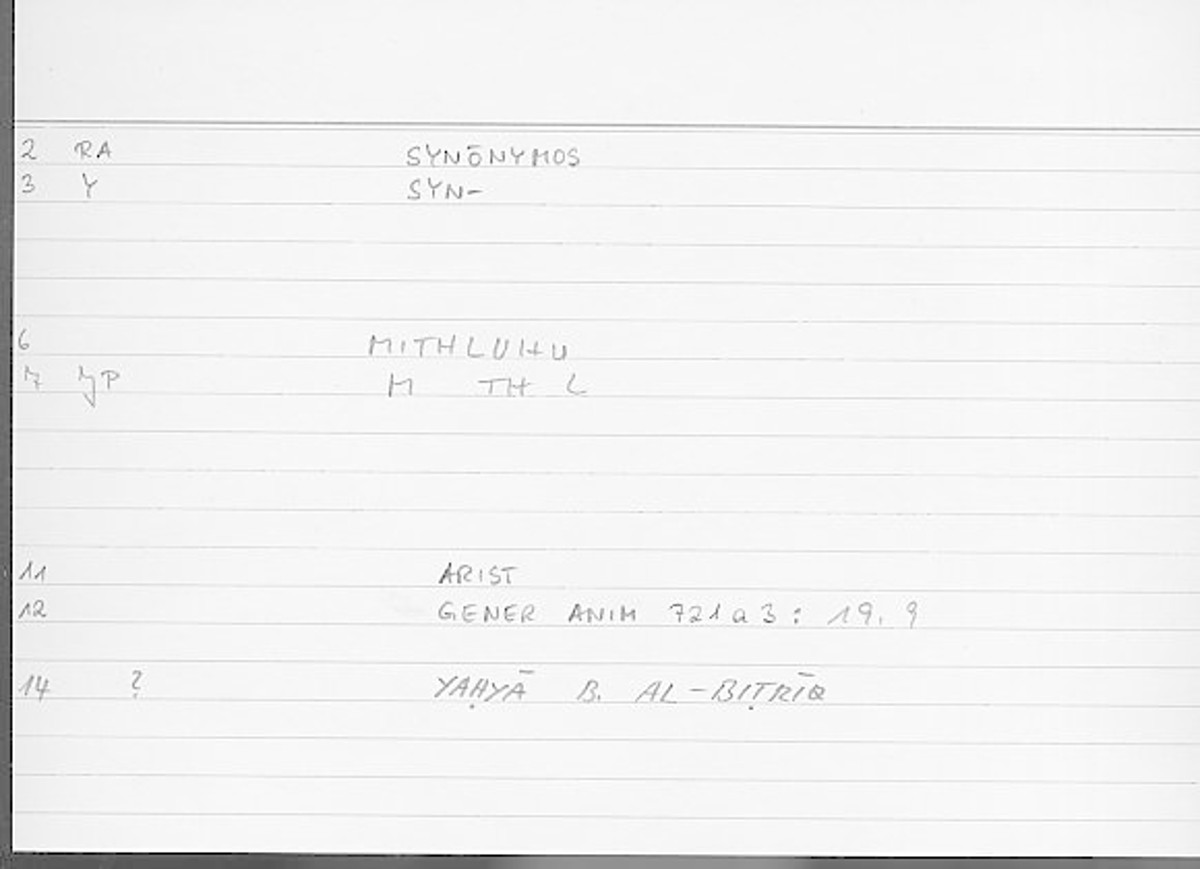 2 RA SYNŌNYMOS
3 Y SYN-
6 MITHLUHU
7 JP M TH L
11 ARIST
12 GENER ANIM 721a3: 19.9
14 ? YAḤYĀ B. AL-BIṬRĪQ